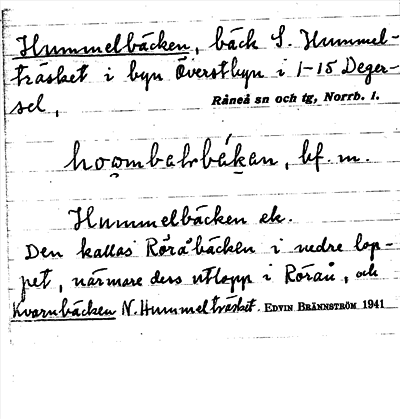 Hummelbäcken, bäck S. Hummel-
träsket i byn Överstbyn i 1-15 Deger-
sel,
Råneå sn och tg, Norrb. l.
bf. m.
Hummelbäcken ek.
Den kallas Röråbäcken i nedre lop-
pet, närmare dess utlopp i Rörån, och
Kvarnbäcken N. Hummelträsket. EDVIN BRÄNNSTRÖM 1941